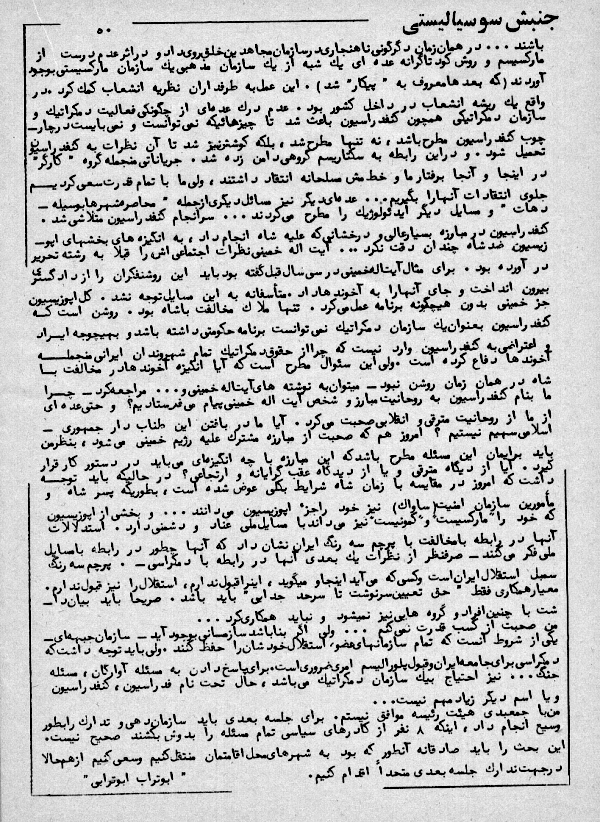 جنبش سوسیالیستی
۵۰
باشند ... در همان زمان دگرگونی ناهنجاری در سازمان مجاهدین خلق روی داد و در اثر عدم درست از
مارکسیسم و روش کودتاگرانه عده ای یک شبه از یک سازمان مذهبی یک سازمان مارکسیستی بوجود
آوردند (که بعدها معروف به " پیکار" شد) . این عمل به طرفداران نظریه انشعاب کمک کرد .در
واقع یک ریشه انشعاب در داخل کشور بود . عدم درک عده‌ای از چگونگی فعالیت دمکراتیک و
سازمان دمکراتیکی همچون کنفدراسیون باعث شد تا چیزهائیکه نمی‌توانست و نمی‌بایست در چار-
چوب کنفدراسیون مطرح باشد ، نه تنها مطرح شد ، بلکه کوشش نیز شد تا آن نظرات به کنفدراسیون
تحمیل شود . و در این رابطه به سکتاریسم گروهی دامن زده شد . جریاناتی منجمله گروه " کارگر"
در اینجا و آنجا برفتار ما و خط مشی مسلحانه انتقاد داشتند ، ولی ما با تمام قدرت سعی کردیم
جلوی انتقادات آنها را بگیریم ... عده‌ای دیگر نیز مسائل دیگری از جمله " محاصره شهرها بوسیله -
دهات " و مسایل دیگر ایدئولوژیک را مطرح می‌کردند ... سرانجام کنفدراسیون متلاشی شد .
کنفدراسیون در مبارزه بسیار عالی و درخشانی که علیه شاه انجام داد ، به انگیزه های بخشهای اپو-
زیسیون ضد شاه چندان دقت نکرد ... آیت اله خمینی نظرات اجتماعی‌اش را قبلا به رشته تحریر
در آورده بود . برای مثال آیت‌اله خمینی در سی سال قبل گفته بود باید این روشنفکران را از دادگستری
بیرون انداخت و جای آنها را به آخوندها داد .متأسفانه به این مسایل توجه نشد . کل اپوزیسیون
جز خمینی بدون هیچگونه برنامه عمل می‌کرد . تنها ملاک مخالفت با شاه بود . روشن است که
کنفدراسیون بعنوان یک سازمان دمکراتیک نمی‌توانست برنامه حکومتی داشته باشد و بهیچوجه ایراد
و اعتراضی به کنفدراسیون وارد نیست که چرا از حقوق دمکراتیک تمام شهروندان ایرانی منجمله
آخوندها دفاع کرده است .ولی این سئوال مطرح است که آیا انگیزه آخوندها در مخالفت با
شاه در همان زمان روشن نبود _ میتوان به نوشته های آیت‌اله خمینی و... مراجعه کرد _ چرا
ما بنام کنفدراسیون به روحانیت مبارز و شخص آیت اله خمینی پیام می‌فرستادیم ؟ و حتی عده‌ای
از ما از روحانیت مترقی و انقلابی صحبت می‌کرد . آیا ما در بافتن این طناب دار جمهوری -
اسلامی سهیم نیستیم ؟ امروز هم که صحبت از مبارزه مشترک علیه رژیم خمینی می‌شود ، بنظر من
باید برایمان این مسئله مطرح باشد که این مبارزه با چه انگیزه‌ای می‌باید در دستور کار قرار
گیرد . آیا از دیگاه مترقی و یا از دیدگاه عقب گرایانه و ارتجاعی ؟ در حالیکه باید توجه
داشت که امروز در مقایسه با زمان شاه شرایط بکلی عوض شده است ، بطوریکه پسر شاه و
مأمورین سازمان امنیت (ساواک) نیز خود را جز اپوزیسیون می‌دانند ... و بخشی از اپوزیسیون
که خود را "مارکسیست" و "کمونیست" نیز می‌داند با مسایل ملی عناد و دشمنی دارد . استدلالات
آنها در رابطه با مخالفت با پرچم سه رنگ ایران نشان داد که آنها چطور در رابطه با مسایل
ملی فکر می‌کنند _ صرفنظر از نظرات یک بعدی آنها در رابطه با دمکراسی _ . پرچم سه رنگ
سمبل استقلال ایران است و کسی که می‌آید اینجا و میگوید ، اینرا قبول ندارم ، استقلال را نیز قبول ندارم .
معیار همکاری فقط " حق تعیین سرنوشت تا سرحد جدایی " باید باشد . صریحا باید بیان دا-
شت با چنین افراد و گروه هایی نیز نمیشود و نباید همکاری کرد ...
من صحبت از کسب قدرت نمی‌کنم ... ولی اگر بنا باشد سازمانی بوجود آید _ سازمان جبهه‌ای _
یکی از شروط آنست که تمام سازمانهای عضو، استقلال خودشان را حفظ کنند .ولی باید توجه داشت که
دمکراسی برای جامعه ایران و قبول پلورالیسم امری ضروری است. برای پاسخ دادن به مسئله آوارگان ، مسئله
جنگ ... نیز احتیاج بیک سازمان دمکراتیک می‌باشد ، حال تحت نام فدراسیون ، کنفدراسیون
و یا اسم دیگر زیاد مهم نیست...
من با جمعبندی هیئت رئیسه موافق نیستم. برای جلسه بعدی باید سازمان‌دهی و تدارک را بطور
وسیع انجام داد ، اینکه ۸ نفر از کادرهای سیاسی تمام مسئله را بدوش بکشند صحیح نیست.
این بحث را باید صادقانه آنطور که بود به شهرهای محل اقامتمان منتقل کنیم و سعی کنیم از هم حالا
در جهت تدارک جلسه بعدی متحداً اقدام کنیم.
" ابوتراب ابوترابی "